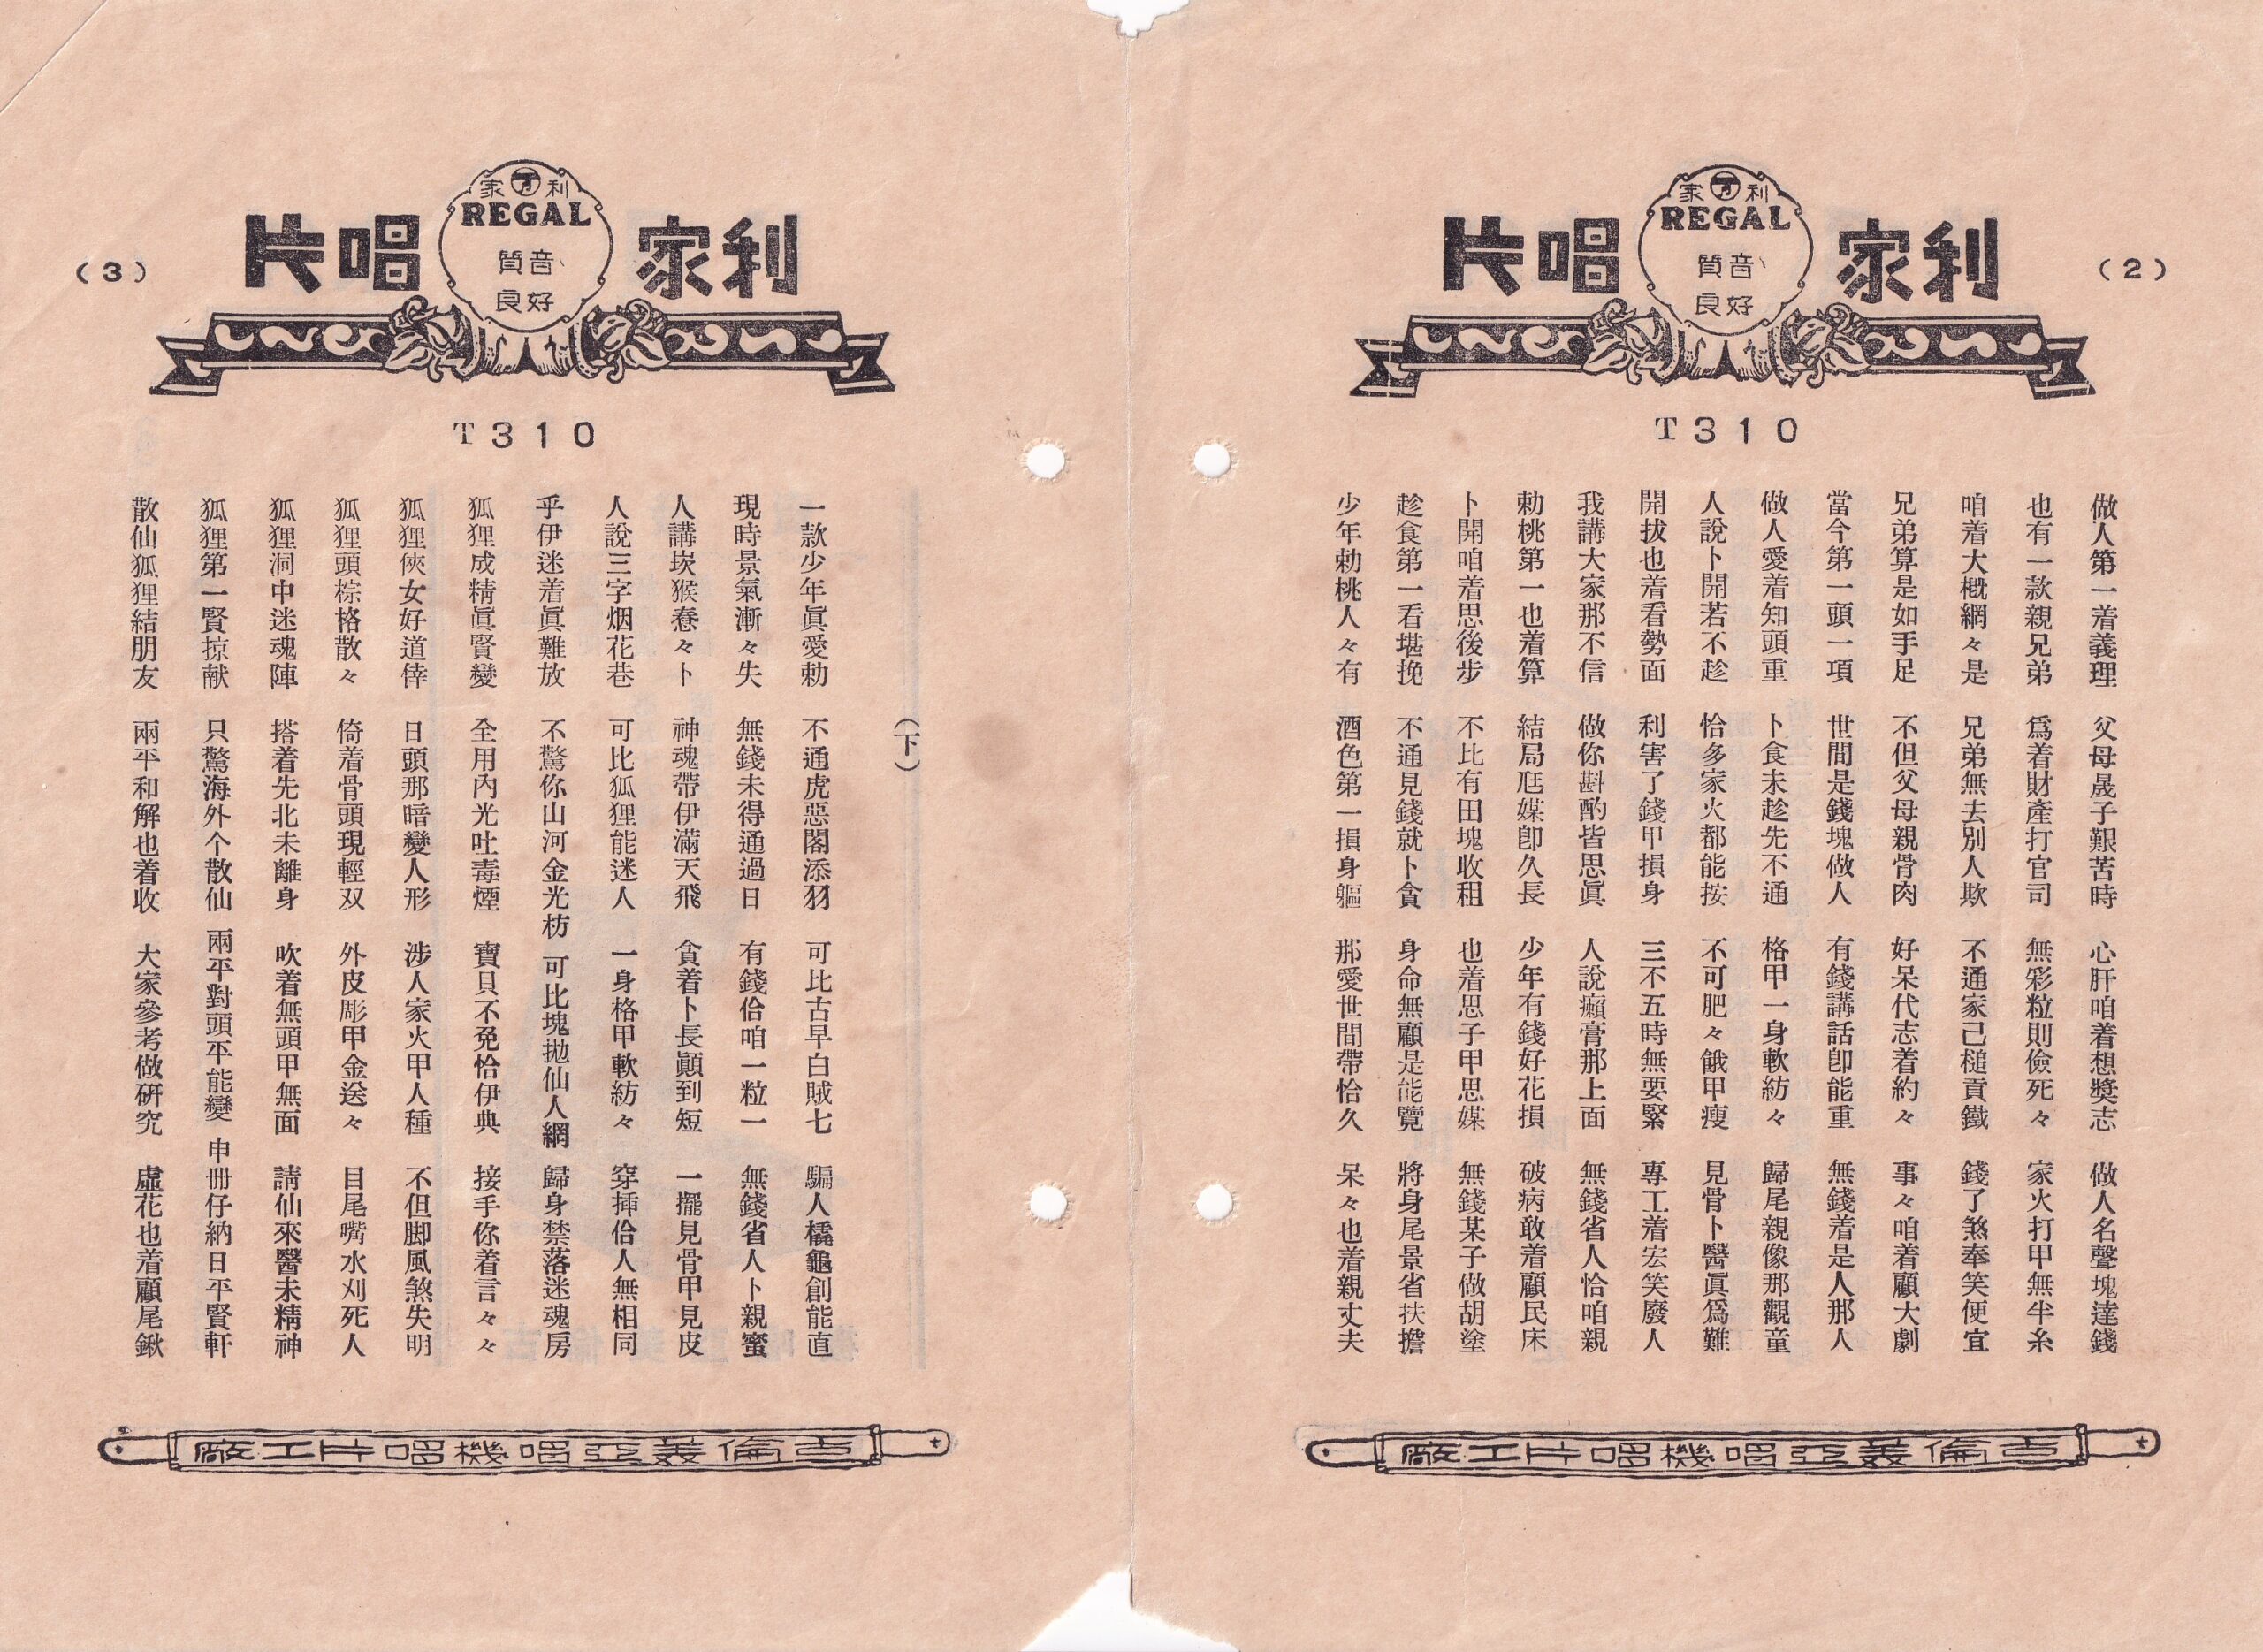 (2)
利家唱片
利家
REGAL
音質
好良
T310
做人第一着義理 父母晟子艱苦時 心肝咱着想獎志 做人名聲塊達錢
也有一款親兄弟 爲着財產打官司 無彩粒則儉死々 家火打甲無半糸
咱着大概網々是 兄弟無去別人欺 不通家己槌貢鐵 錢了煞奉笑便宜
兄弟算是如手足 不但父母親骨肉 好呆代志着約々 事々咱着顧大劇
當今第一頭一項 世間是錢塊做人 有錢講話卽能重 無錢着是人那人
做人愛着知頭重 卜食未趁先不通 格甲一身軟紡々 歸尾親像那觀童
人說卜開若不趁 恰多家火都能按 不可肥々餓甲瘦 見骨卜醫眞爲難
開拔也着看勢面 利害了錢甲損身 三不五時無要緊 專工着宏笑廢人
我講大家那不信 做你斟酌皆思眞 人說癩膏那上面 無錢省人恰咱親
勅桃第一也着算 結局尫媒卽久長 少年有錢好花損 破病敢着顧民床
卜開咱着思後步 不比有田塊收租 也着思子甲思媒 無錢某子做胡塗
趁食第一看堪挽 不通見錢就卜貪 身命無顧是能覽 將身尾景省扶擔
少年勅桃人々有 酒色第一損身軀 那愛世間帶恰久 呆々也着親丈夫
古倫美亞唱機唱片工廠
(3)
利家唱片
利家
REGAL
音質
好良
T310
(下)
一款少年眞愛勅 不通虎惡閣添羽 可比古早白賊七 騙人橇龜創能直
現時景氣漸々失 無錢未得通過日 有錢佮咱一粒一 無錢省人卜親蜜
人講崁猴惷々卜 神魂帶伊滿天飛 貪着卜長顚到短 一擺見骨甲見皮
人說三字烟花巷 可比狐狸能迷人 一身格甲軟紡々 穿揷佮人無相同
乎伊迷着眞難放 不驚你山河金光枋 可比塊拋仙人網 歸身禁落迷魂房
狐狸成精眞賢變 全用內光吐毒煙 寶貝不免恰伊典 接手你着言々々
狐狸俠女好道倖 日頭那暗變人形 涉人家火甲人種 不但脚風煞失明
狐狸頭棕格散々 倚着骨頭現輕双 外皮彫甲金送々 目尾嘴水刈死人
狐狸洞中迷魂陣 搭着先北未離身 吹着無頭甲無面 請仙來醫未精神
狐狸第一賢掠献 只驚海外个散仙 兩平對頭平能變 申冊仔納日平賢軒
散仙狐狸結朋友 兩平和解也着收 大家參考做硏究 虛花也着顧尾鍬
古倫美亞唱機唱片工廠